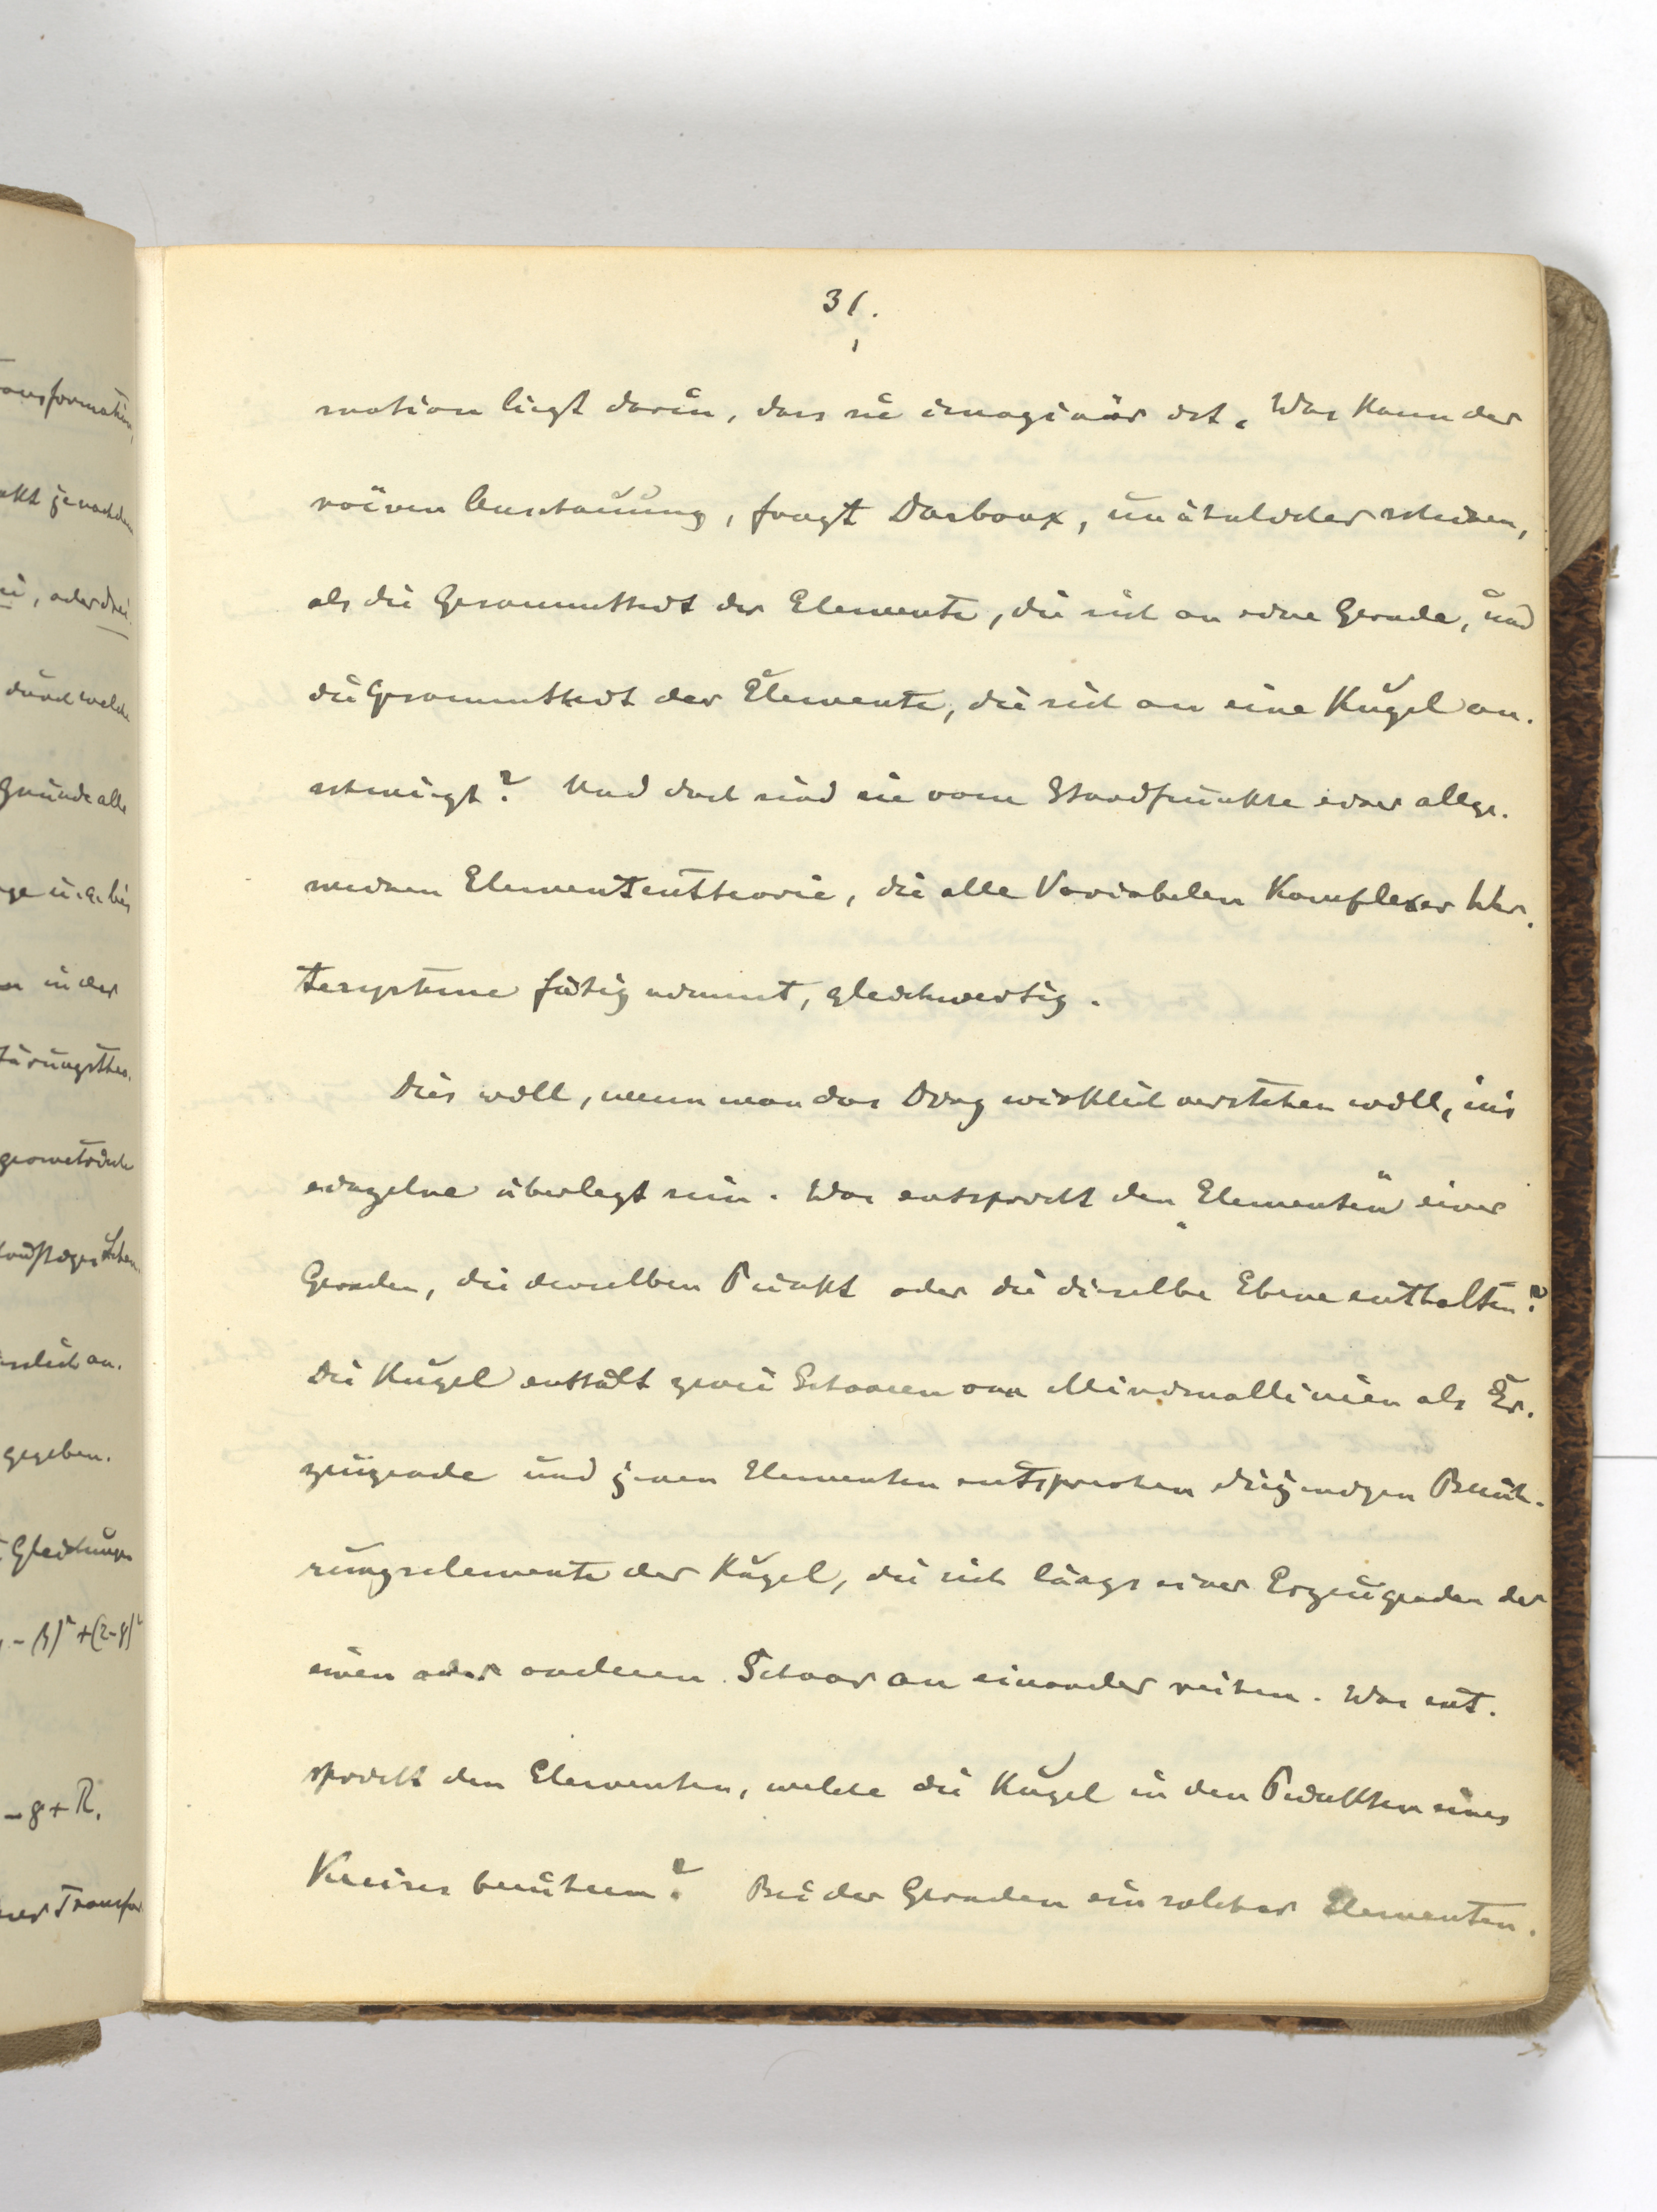 ransformation,
nkt jenachdem
ei, oder drei
durch welche
Grunde alle
in der
geometrische
gegeben.
Gleichungen
- β)² + (z-γ)²
- γ + R.
ner Transfor
31.
mation liegt darin, dass sie imaginär ist. Was kann der
naiven Anschauung, fragt Darboux, unähnlicher scheinen,
als die Gesammtheit der Elemente, die sich an eine Gerade, und
die Gesammtheit der Elemente, die sich an eine Kugel an-
schmiegt? Und doch sind sie vom Standpunkte einer allge-
meinen Elemententheorie, die alle Variabelen komplexer Wer-
tesysteme fähig nimmt, gleichwertig.
Dies will, wenn man das Ding wirklich verstehen will, ins
einzelne überlegt sein. Was entspricht den „Elementen" einer
Geraden, die denselben Punkt oder die dieselbe Ebene enthalten?
Die Kugel enthält zwei Schaaren von Minimallinien als Er-
zeugende und jenen Elementen entsprechen diejenigen Berüh-
rungselemente der Kugel, die sich längs einer Erzeugenden der
einen oder anderen Schaar an einander reihen. Was ent-
spricht den Elementen, welche die Kugel in den Punkten eines
Kreises berühren? Bei der Geraden ein solcher Elementen-